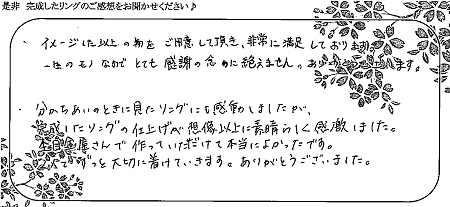 是非 完成したリングのご感想をお聞かせください♪
・イメージした以上の物をご用意して頂き、非常に満足しております。
一生のモノなので とても感謝の念に絶えません。ありがとうございます。
・分かちあいのときに見たリングにも感動しましたが、
完成したリングの仕上げが想像以上に素晴らしく感激しました。
杢目金屋さんで作っていただけて本当によかったです。
二人でずっと大切に着けていきます。ありがとうございました。